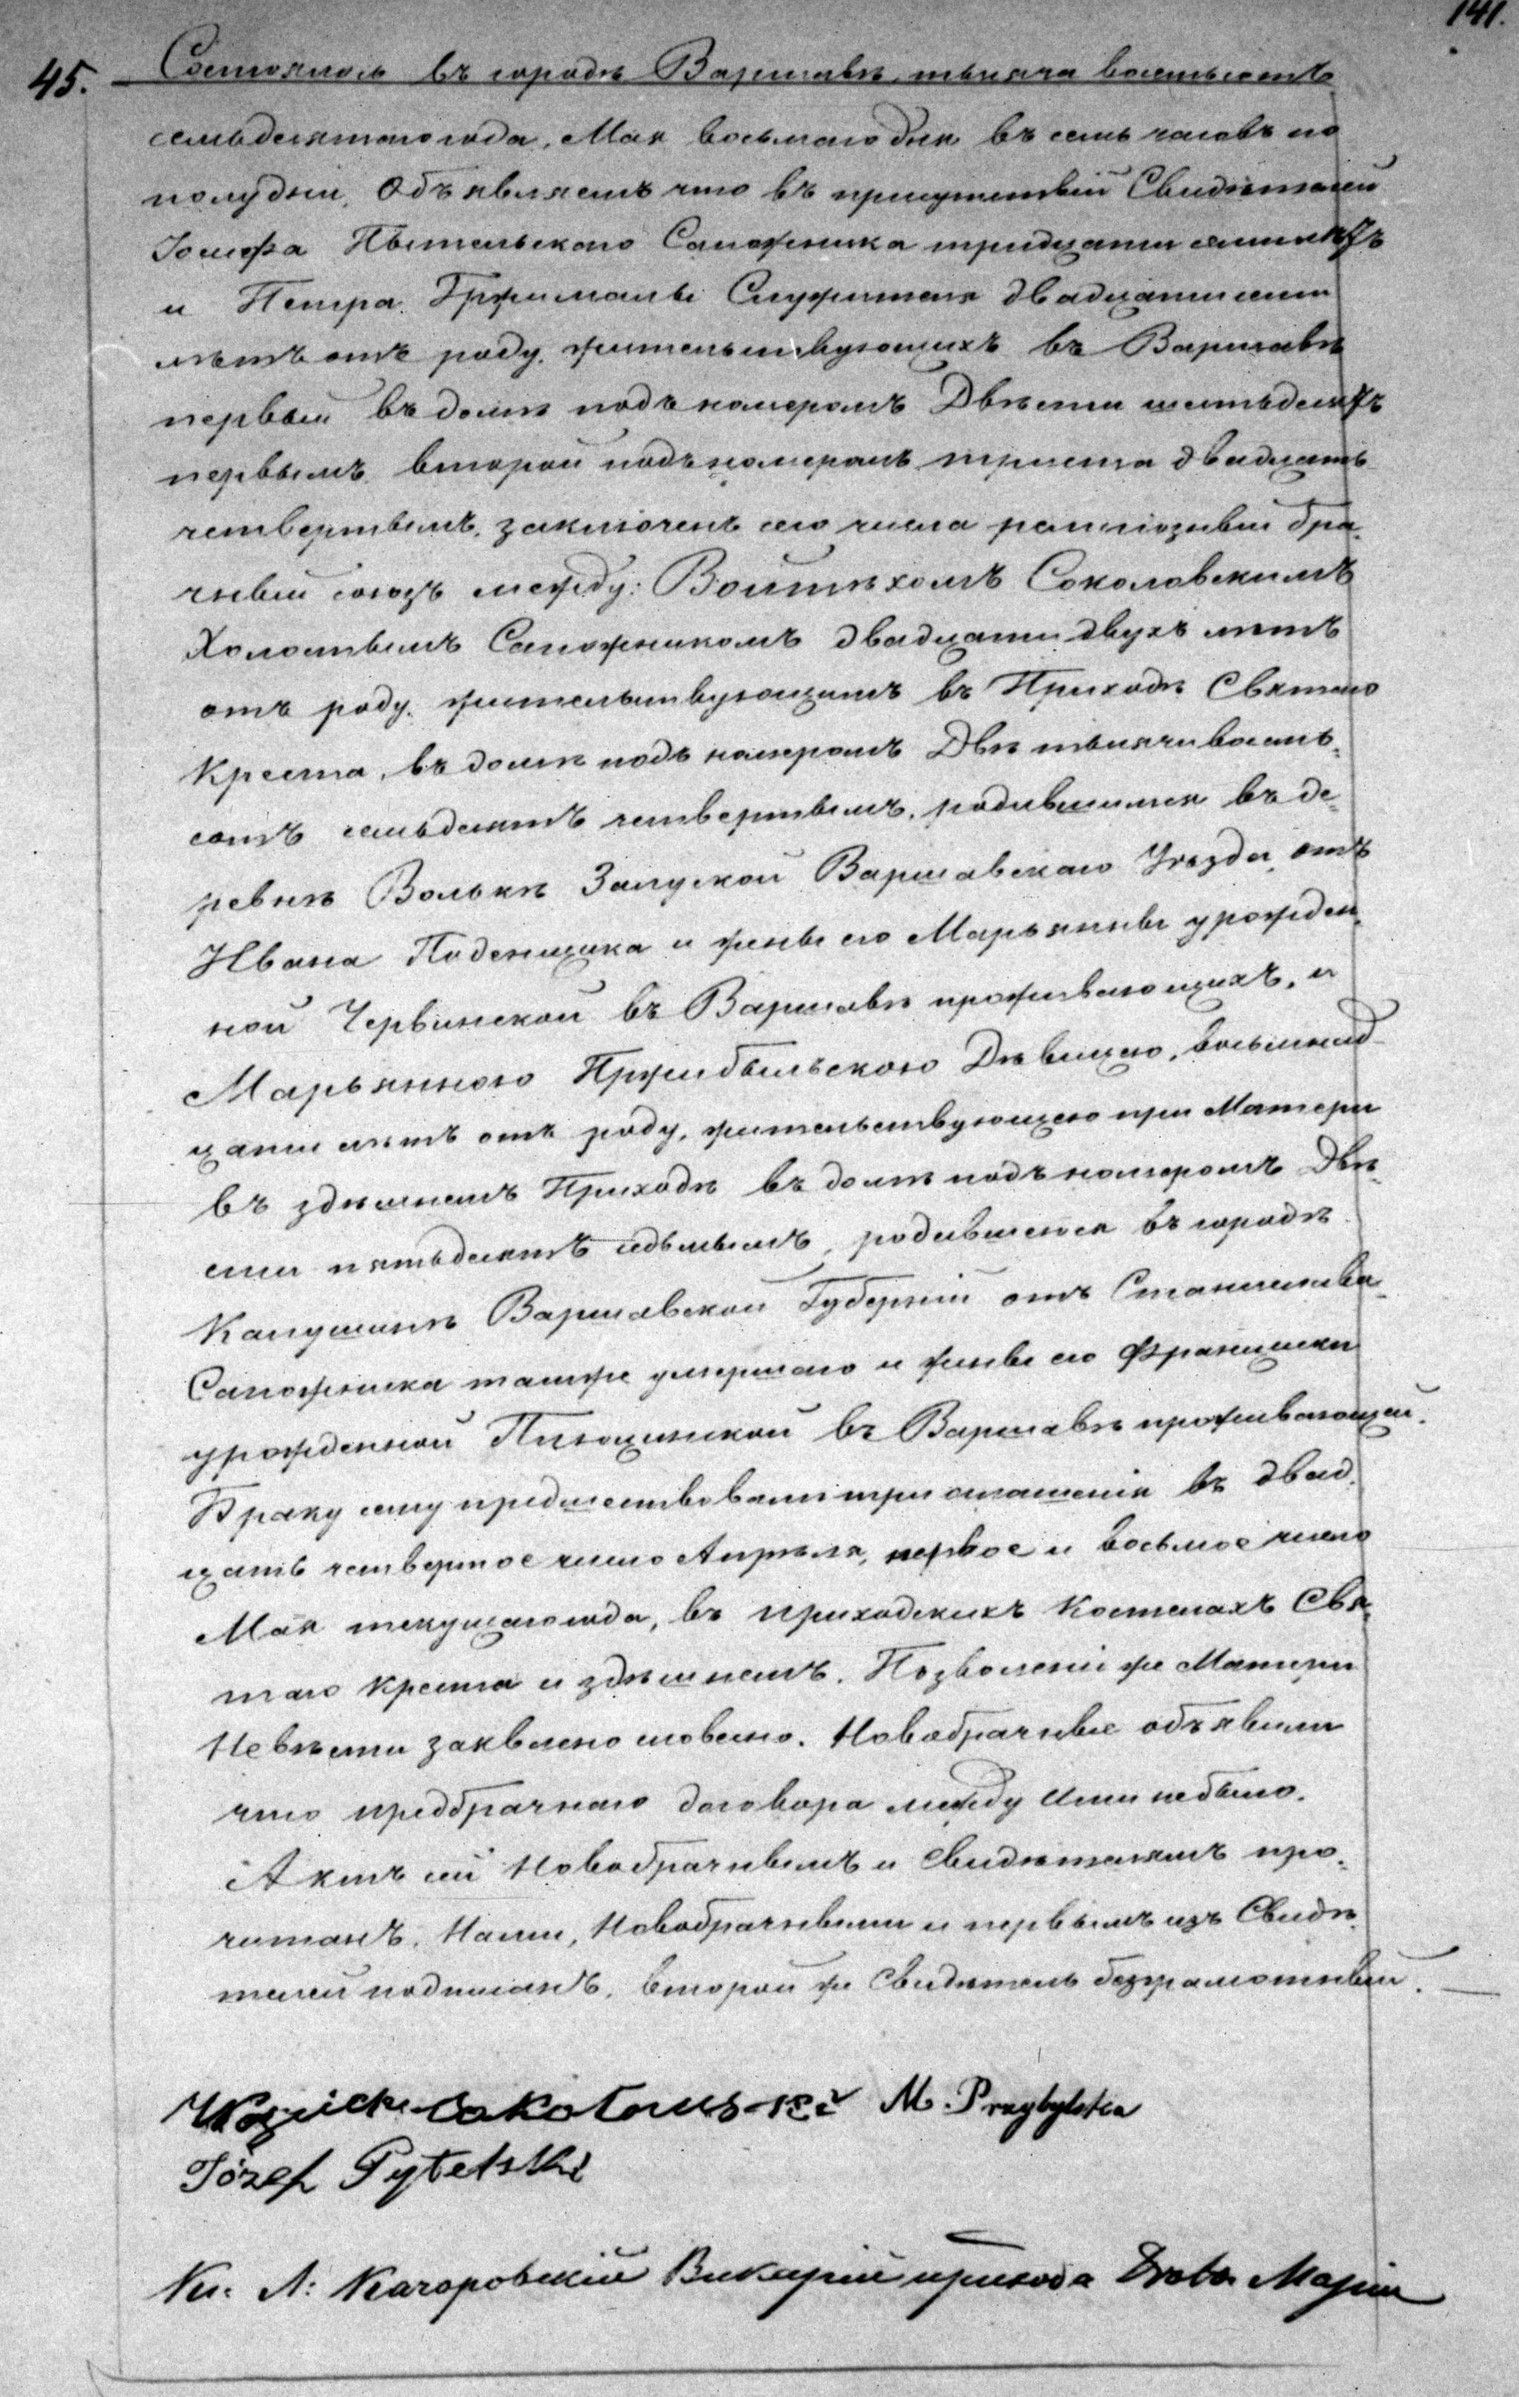 141.
45. Состоялось въ городѣ Варшавѣ, тысяча восемьсотъ
семьдесятаго года, Мая восьмаго дня въ семь часовъ по
полудни. Объявляемъ что въ присутствіи Свидѣтелей
Іосифа Пытельскаго Сапожника тридцати семи лѣтъ
и Петра Гржималы Служителя двадцати семи
лѣтъ отъ роду, жительствующихъ въ Варшавѣ
первый въ домѣ подъ номеромъ Двѣсти шестьдесятъ
первымъ, второй подъ номеромъ триста двадцать
четвертымъ, заключенъ сего числа религіозный бра-
чный союзъ между: Войтѣхомъ Соколовскимъ
Холостымъ Сапожникомъ двадцати двухъ лѣтъ
отъ роду, жительствующимъ въ Приходѣ Святаго
Креста, въ домѣ подъ номеромъ Двѣ тысячи восемь-
сотъ семьдесятъ четвертымъ, родившимся въ де-
ревнѣ Волькѣ Залуской Варшавскаго Уѣзда, отъ
Ивана Поденщика и жены его Марьянны урожден-
ной Червинской въ Варшавѣ проживающихъ, и
Марьянною Пржибыльскою Дѣвицею, восьмнад-
цати лѣтъ отъ роду, жительствующею при Матери
въ здѣшнемъ Приходѣ въ домѣ подъ номеромъ Двѣ-
сти пятьдесятъ седьмымъ, родившеюся въ городѣ
Калушинѣ Варшавской Губерніи отъ Станислава
Сапожника тамже умершаго и жены его Францишки
урожденной въ Варшавѣ проживающей.
Браку сему предшествовали три оглашенія въ двад-
цать четвертое число Апрѣля, первое и восьмое число
Мая текущаго года, въ приходскихъ Костелахъ Свя-
таго Креста и здѣшнемъ. Позволеніе Матери
Невѣсты заявлено словесно. Новобрачные объявили
что предбрачнаго договора между ими не было.
Актъ сей Новобрачнымъ и Свидѣтелямъ про-
читанъ, Нами, Новобрачными и первымъ изъ Свидѣ-
телей подписанъ, второй же Свидѣтель безграмотный.
Sokołowski M. Przybylska
Józef Pytelski
Кс. Л: Качоровскій Викарій прихода Маріи